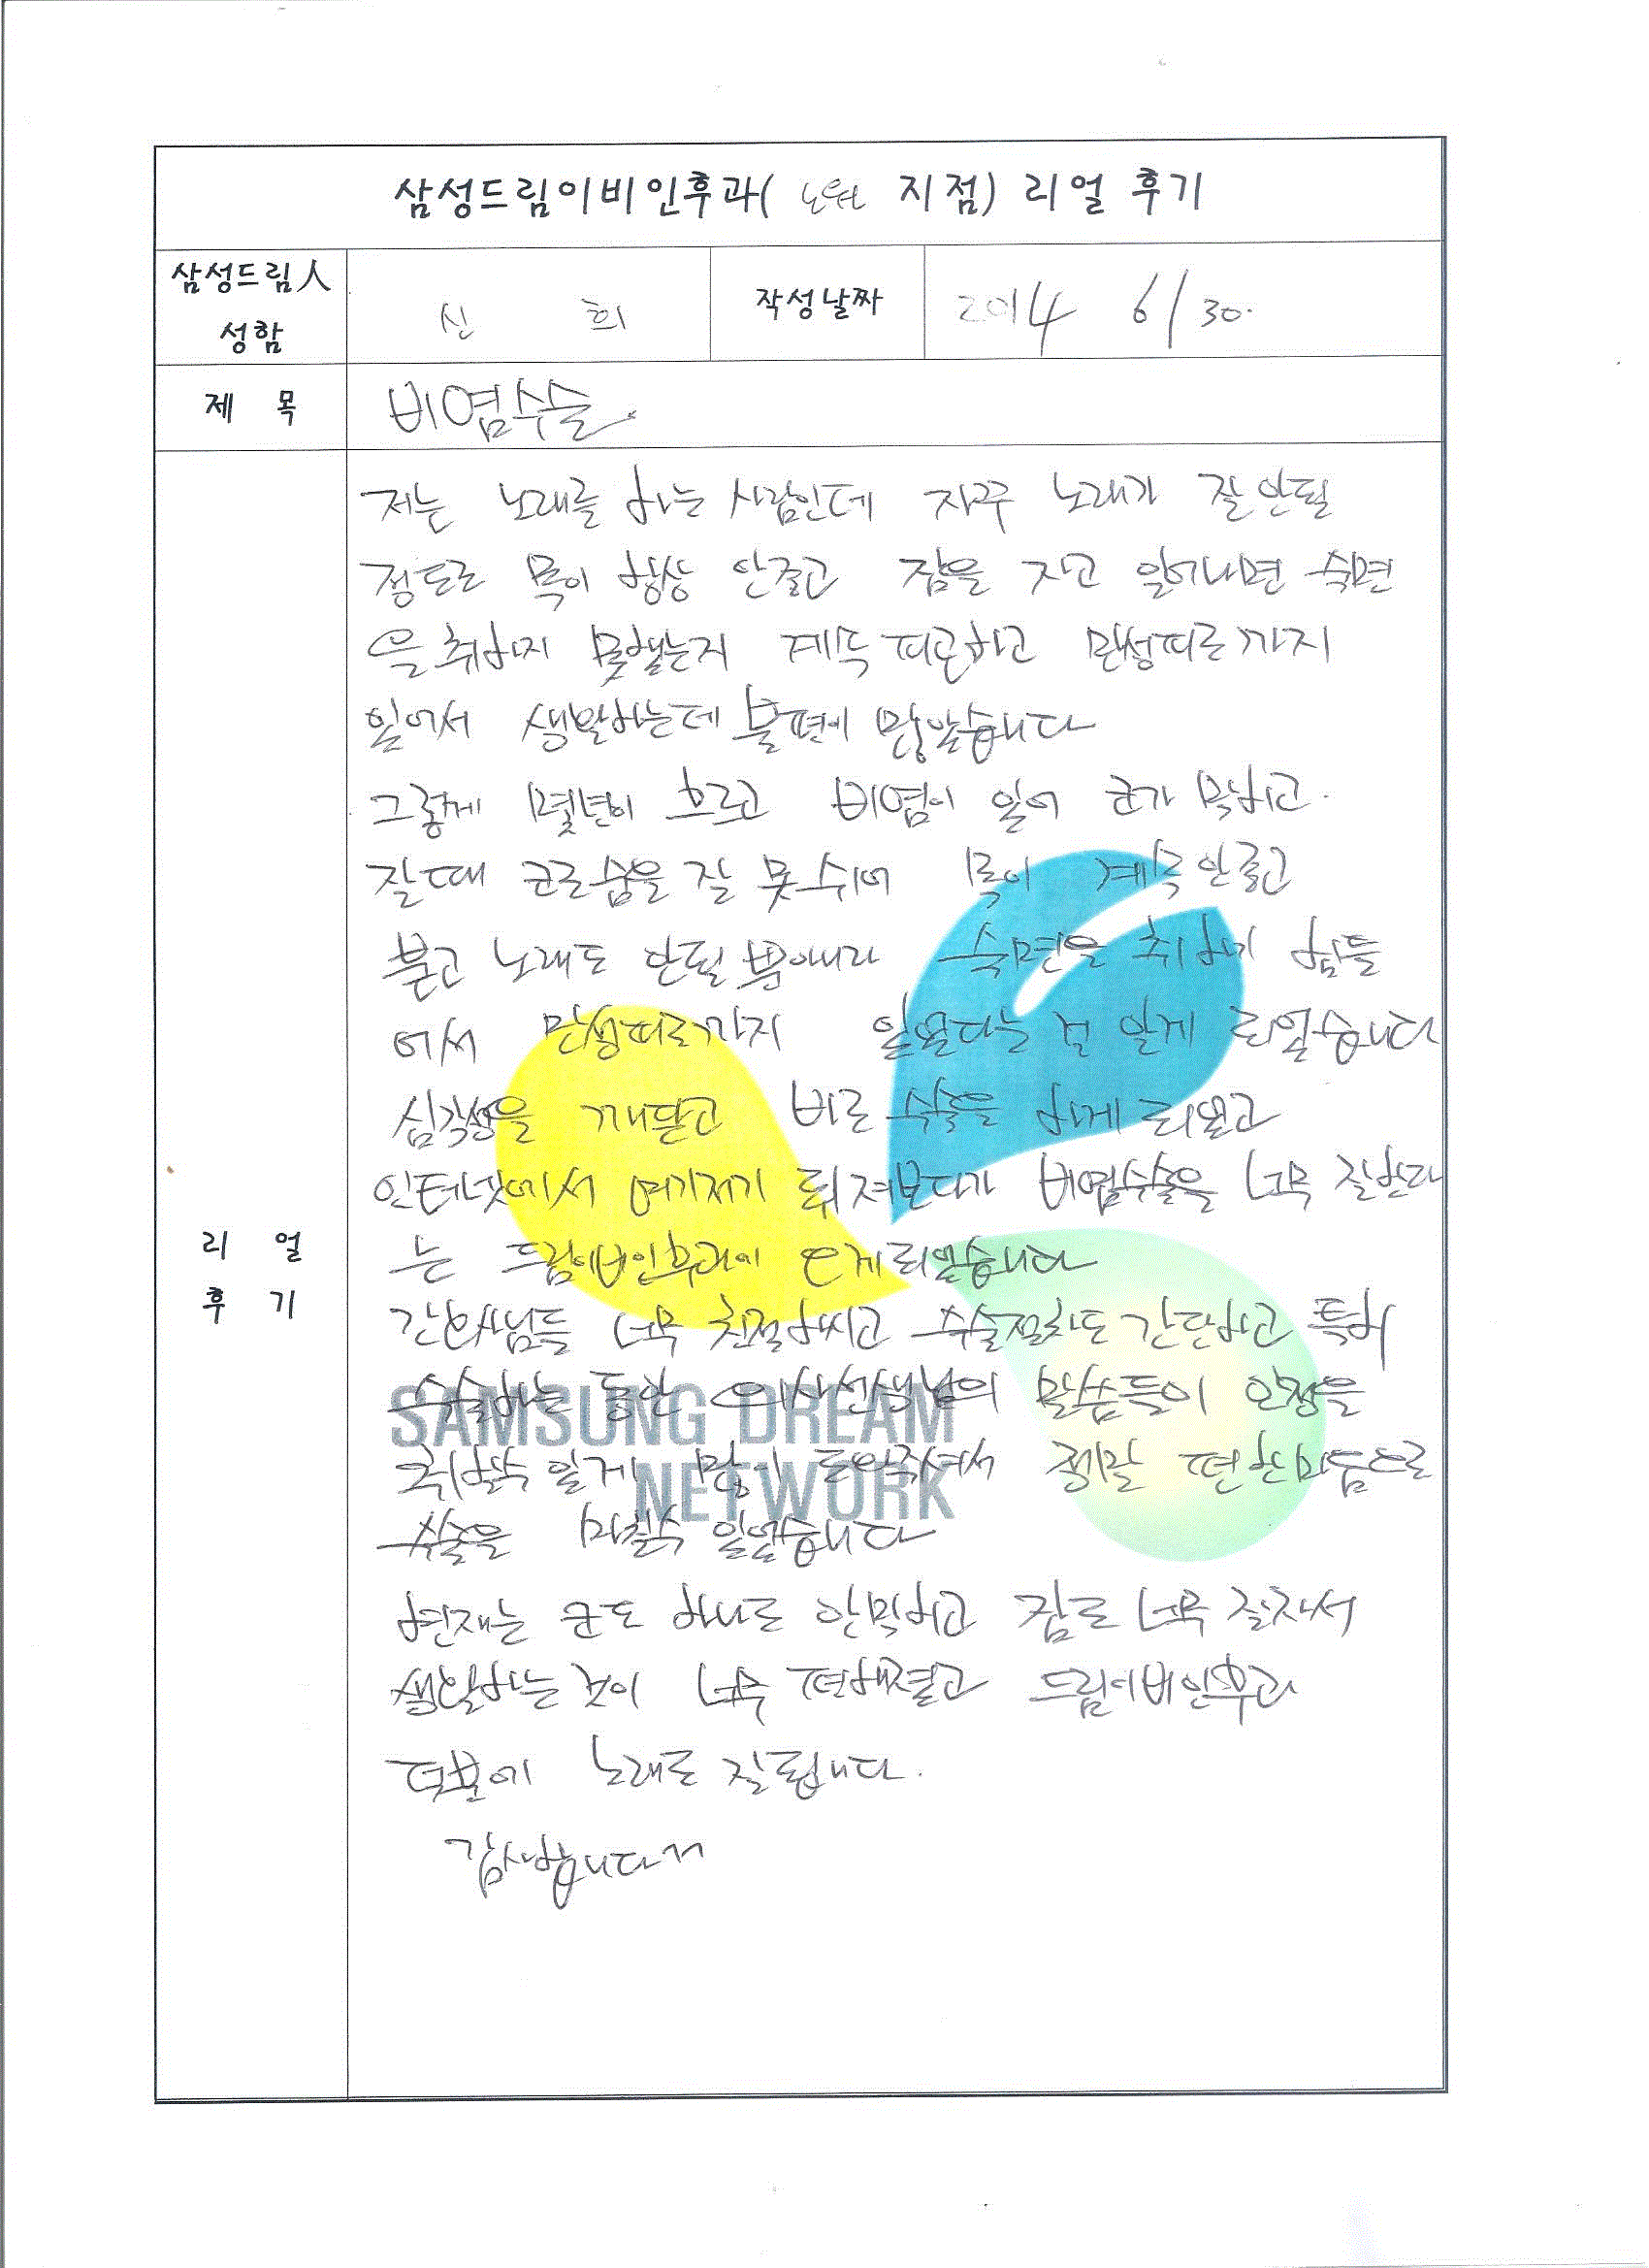 삼성드림이비인후과( 노원 지점) 리얼 후기
삼성드림人
성함
신 희
작성날짜
2014 6/30.
제 목
비염수술.
저는 노래를 하는 사람인데 자꾸 노래가 잘 안될
정도로 목이 항상 안좋고 잠을 자고 일어나면 숙면
을 취하지 못했는지 계속 피곤하고 만성피로까지
있어서 생활하는데 불편이 많았습니다
그렇게 몇년이 흐르고 비염이 있어 코가 막히고.
잘때 코로 숨을 잘 못 쉬어 목이 계속 안좋고
붇고 노래도 안될 뿐아니라 숙면을 취하기 힘들
어서 만성피로까지 있었다는 걸 알게 되었습니다
심각성을 깨닫고 바로 수술을 하게 되었고
인터넷에서 여기저기 뒤져보다가 비염수술을 너무 잘한다
는 드림이비인후과에 오게 되었습니다
리 얼
후 기
간호사님들 너무 친절하시고 수술절차도 간단하고 특히
수술하는 동안 의사선생님의 말씀들이 안정을
취할수 있게 많이 도와주셔서 정말 편한마음으로
수술을 마칠수 있었습니다
SAMSUNG DREAM
NETWORK
현재는 코도 하나도 안막히고 잠도 너무 잘자서
생활하는 것이 너무 편해졌고 드림이비인후과
덕분에 노래도 잘됩니다.
감사합니다